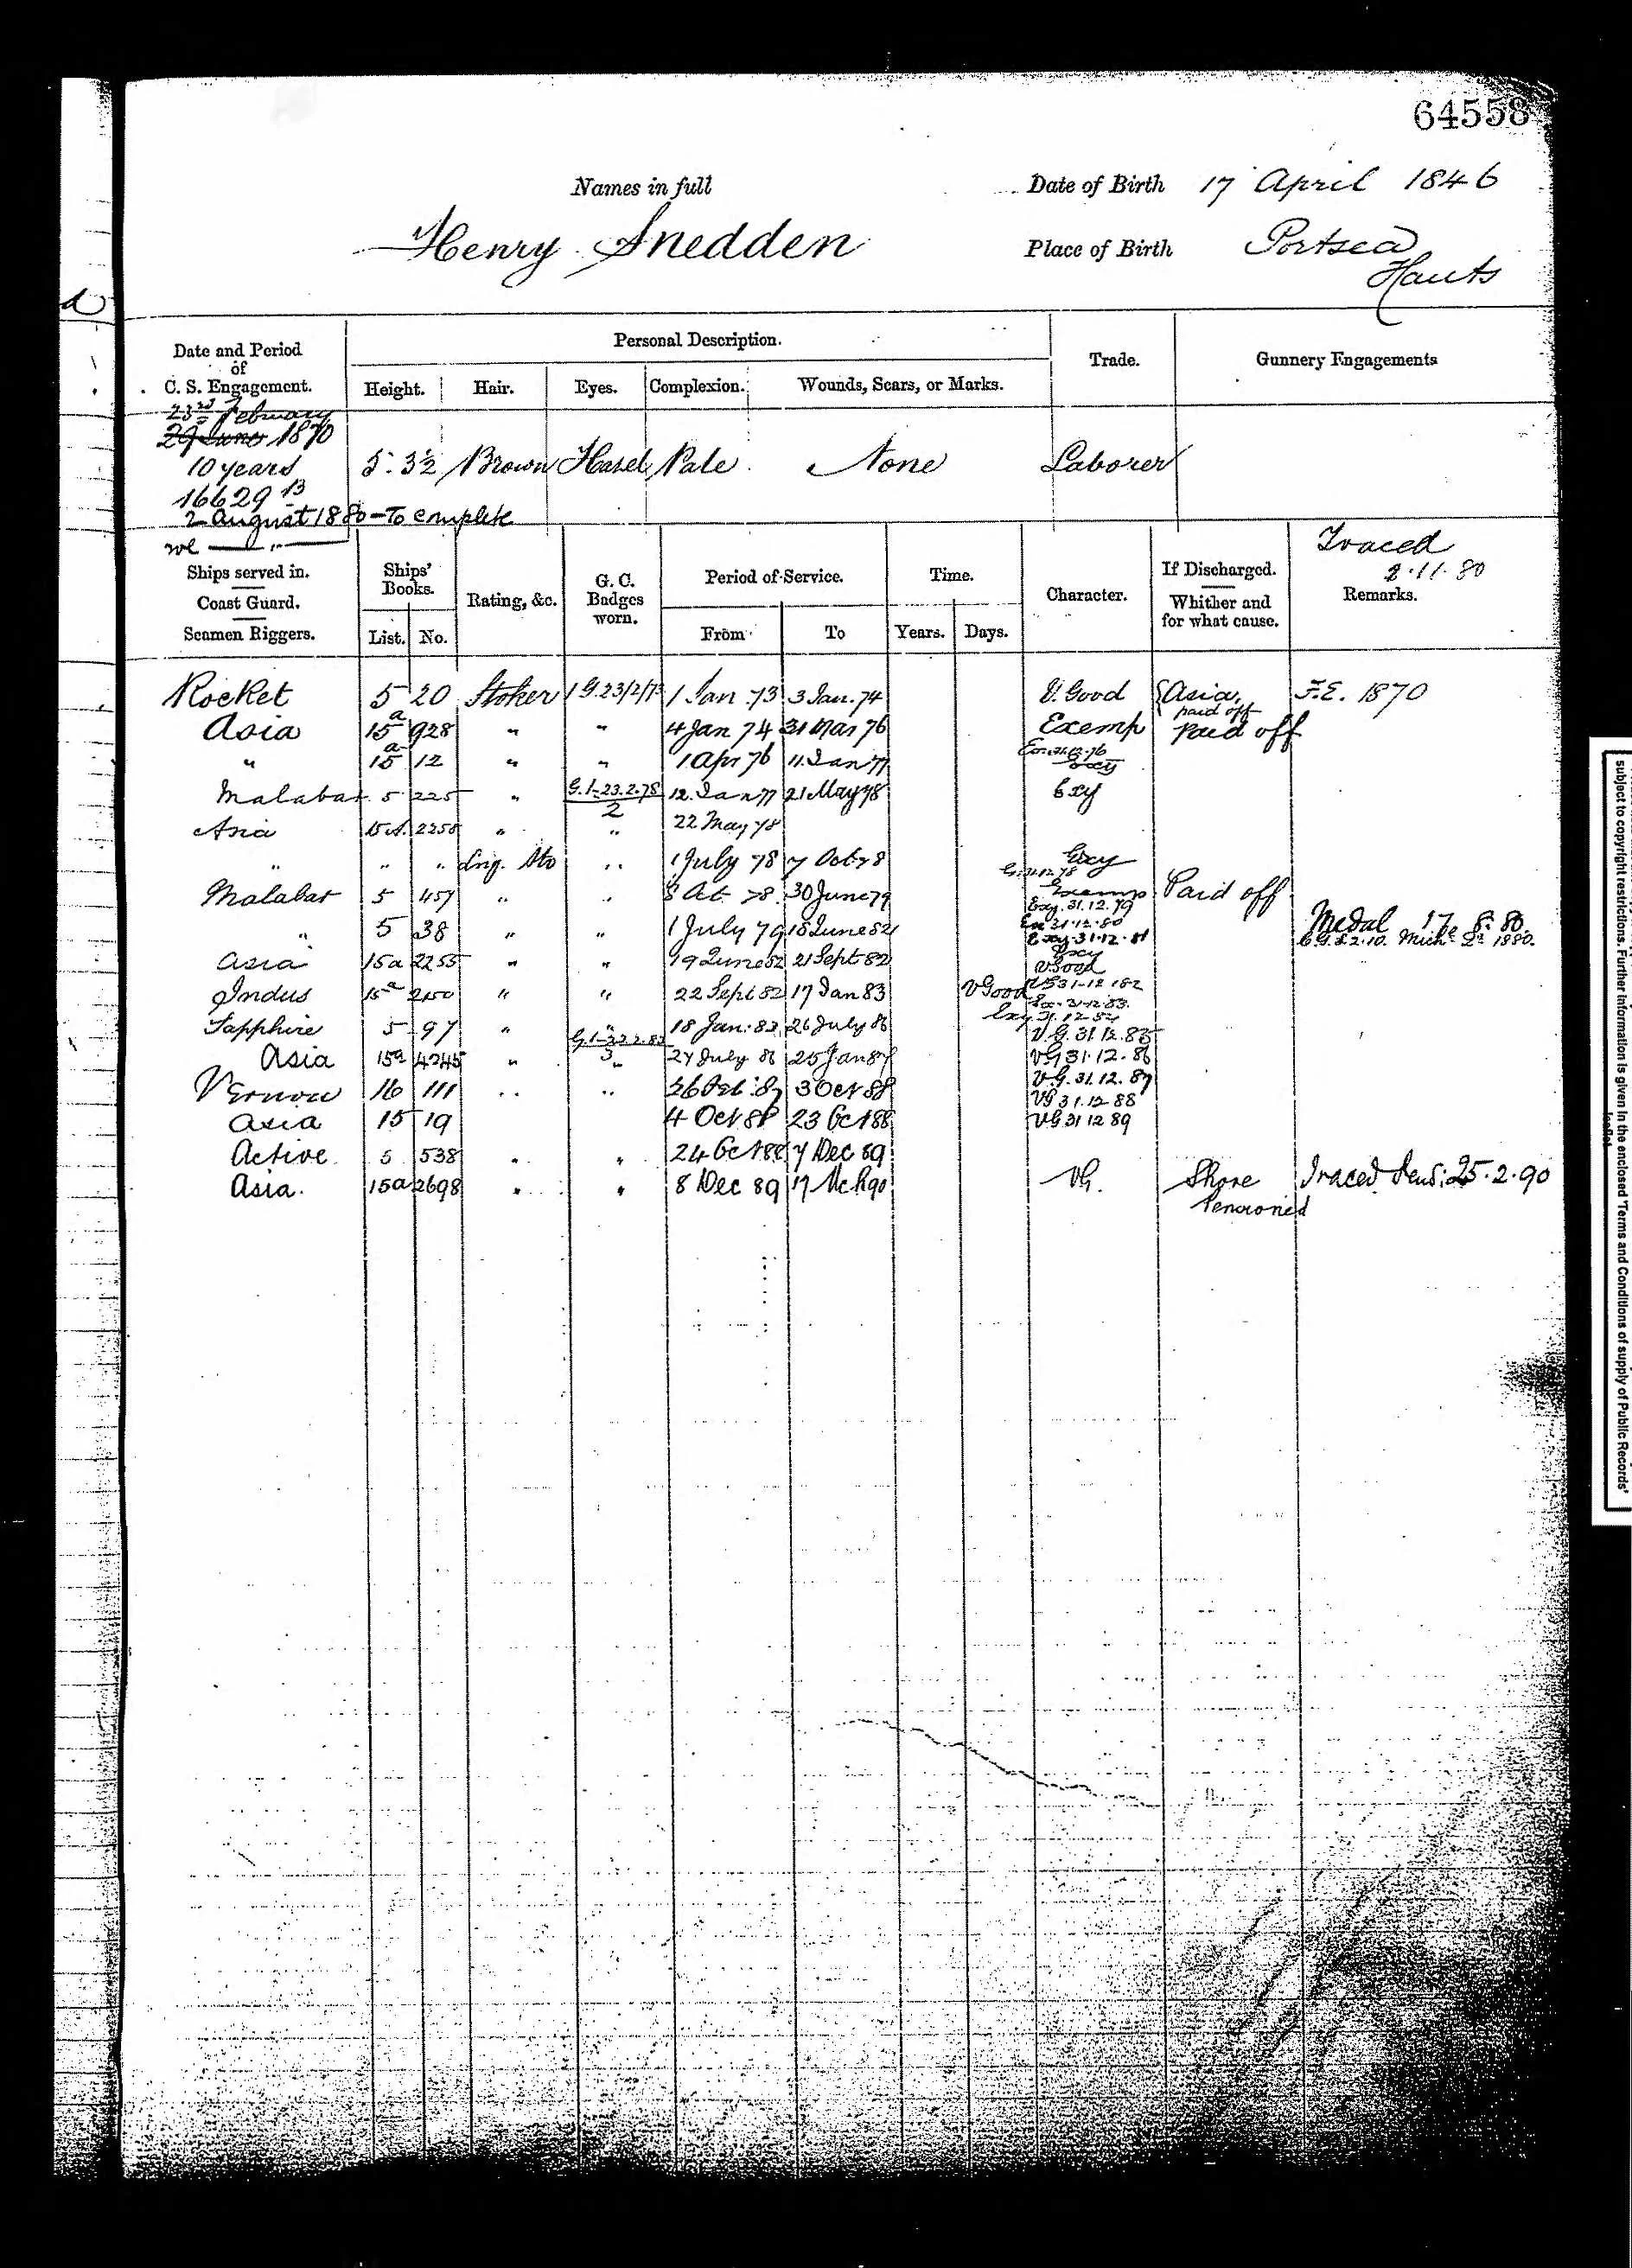 64558
Names in full
Date of Birth 17 April 1846
Henry Snedden
Place of Birth Portsea
Hants
Date and Period
of
C. S. Engagement.
Personal Description.
Trade.
Gunnery Engagements
Height. Hair. Eyes. Complexion. Wounds, Scars, or Marks.
23rd February
29 June 1870
10 years
5. 3½ Brown Hazel Pale None Laborer
16629 B
2 August 1880 - To complete
Traced
2.11.80
Ships served in.
Coast Guard.
Seamen Riggers.
Ships' Books.
List. No.
Rating, &c.
G. C. Badges worn.
Period of Service.
From To
Time.
Years. Days.
Character.
If Discharged.
Whither and for what cause.
Remarks.
Rocket 5 20 Stoker 1 G. 23/2/73 1 Jan. 73 3 Jan. 74 V. Good Asia, paid off F.E. 1870
Asia 15a 928 " " 4 Jan 74 31 Mar 76 Exemp Paid off
" 15a 12 " " 1 Apr 76 11. Jan 77
Malabar 5 225 " G.1-23.2.78 2 12. Jan 77 21 May 78 Exy
Asia 15A. 2258 " " 22 May 78
" " " Lng. Sto " 1 July 78 7 Oct 78 Exy
Malabar 5 457 " " 8 Oct. 78. 30 June 79 Exemp Paid off
Exy. 31.12.79
" 5 38 " " 1 July 79 18 June 82 Ex 31.12.80 Medal 17. 8. 80.
Exy. 31.12.81
Asia 15a 2255 " " 19 June 82 21 Sept 82 Exy
V Good
Indus 15a 2450 " " 22 Sept 82 17 Jan 83 V Good
Sapphire 5 97 " " 18 Jan. 83 26 July 86 V.G. 31.12.85
Asia 15a 4245 " 3 " 27 July 86 25 Jan 87 VG 31.12.86
Vernon 16 111 " " 3 Oct 88 V.G. 31.12.87
VG 31.12.88
Asia 15 19 4 Oct 88 23 Oct 88 VG 31 12 89
Active 5 538 " " 24 Oct 88 7 Dec 89
Asia. 15a 2698 " " 8 Dec 89 17 Mch 90 VG. Shore Pensioned Traced Pens: 25.2.90
subject to copyright restrictions. Further information is given in the enclosed 'Terms and Conditions of supply of Public Records' leaflet